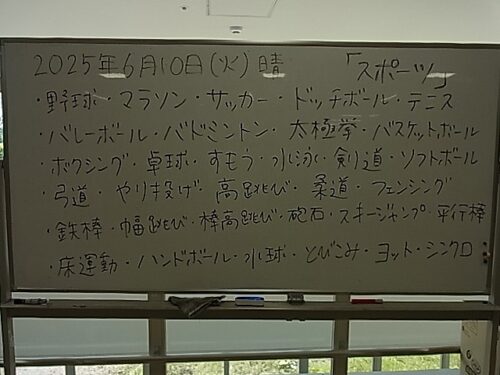 2025年6月10日(火)晴 「スポーツ」
・野球・マラソン・サッカー・ドッチボール・テニス
・バレーボール・バドミントン・太極拳・バスケットボール
・ボクシング・卓球・すもう・水泳・剣道・ソフトボール
・弓道・やり投げ・高跳び・柔道・フェンシング
・鉄棒・幅跳び・棒高跳び・砲石・スキージャンプ・平行棒
・床運動・ハンドボール・水球・とびこみ・ヨット・シンクロ